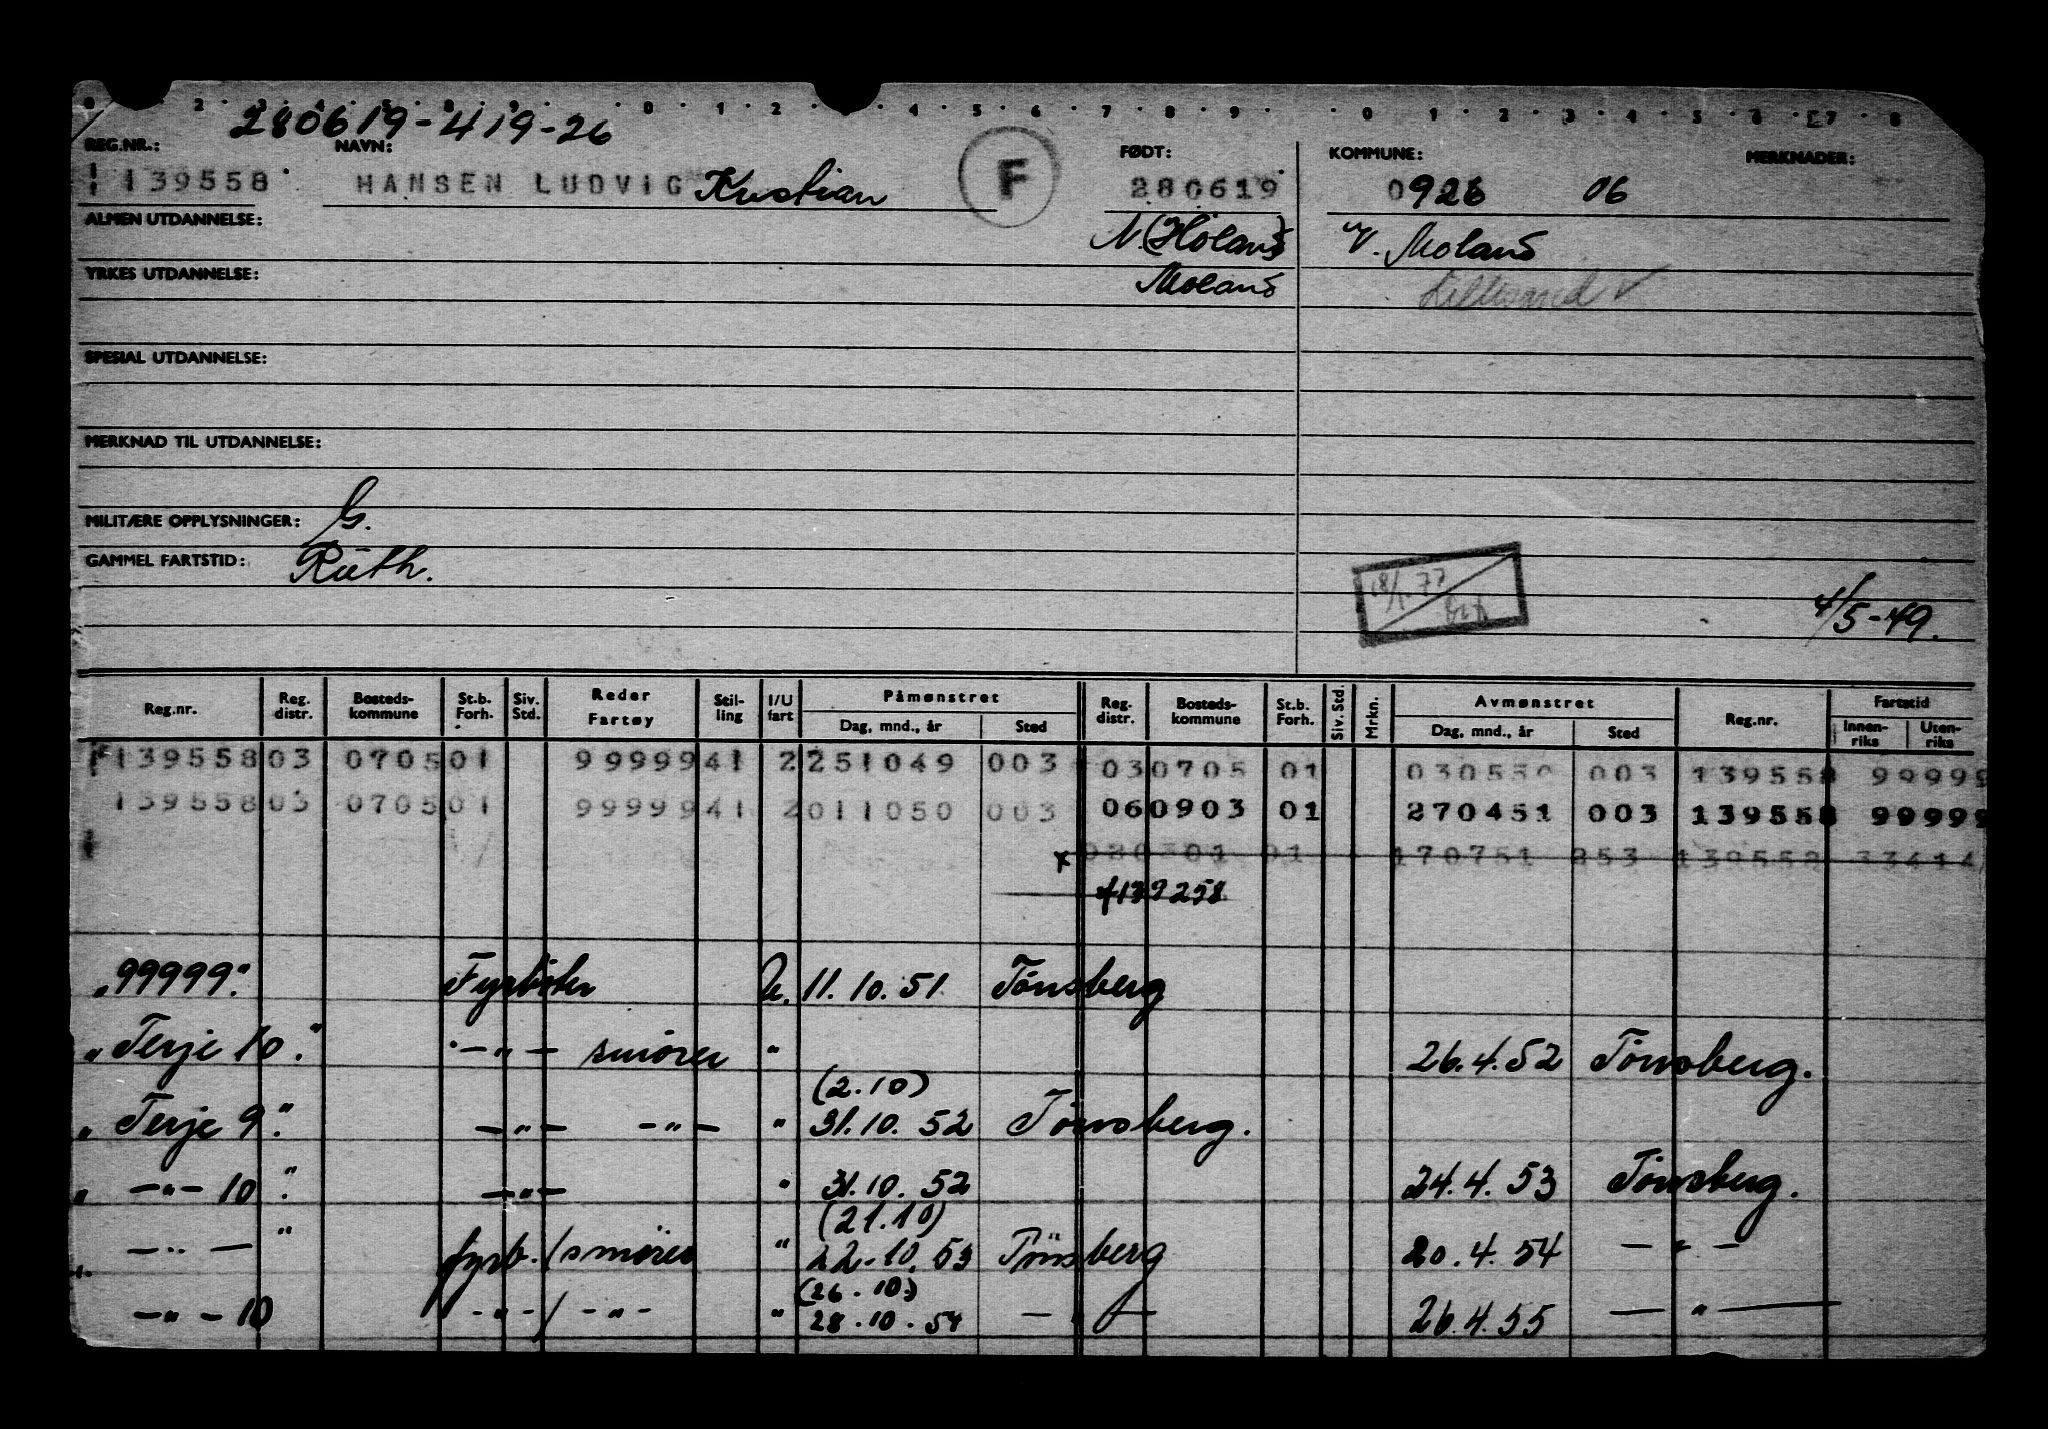 0 2 3 4 5 8 9 0 1 2 4 5 6 7 8 9 0 1 2 3 4 5 6 7 8
280619-419-26
REG.NR.: NAVN: FØDT: KOMMUNE: MERKNADER:
139558 HANSEN LUDVIG Kristian F 280619 0926 06
ALMEN UTDANNELSE: N. (Høland) V. Moland
YRKES UTDANNELSE: Moland Lillesand ✓
SPESIAL UTDANNELSE:
MERKNAD TIL UTDANNELSE:
MILITÆRE OPPLYSNINGER: G.
GAMMEL FARTSTID: Rüth.
18/1.77
4/5-49.
Reg.nr. Reg. distr. Bosteds-kommune St.b. Forh. Siv. Std. Reder Fartøy Stil-ling I/U fart Påmønstret Dag, mnd., år Sted Reg. distr. Bosteds-kommune St.b. Forh. Siv. Std. Mrkn. Avmønstret Dag, mnd., år Sted Reg.nr. Fartstid Innen-riks Uten-riks
139558 03 0705 01 99999 41 2 251049 003 03 0705 01 030550 003 139558 99999
139558 03 0705 01 99999 41 2 011050 003 06 0903 01 270451 003 139558 99999
x 080301 01 170751 853 139558 33414
f139258
"99999." Fyrbøter U. 11.10.51 Tönsberg
"Terje 10." -"- smører " 26.4.52 Tönsberg.
(2.10)
"Terje 9." -"- -"- " 31.10.52 Tönsberg.
" -"- 10." -"- " 31.10.52 24.4.53 Tönsberg.
(21.10)
-"- " fyrb./smører " 22.10.53 Tönsberg 20.4.54 -"-
(26.10)
-"- 10 -"-/-"- " 28.10.54 -"- 26.4.55 -"-